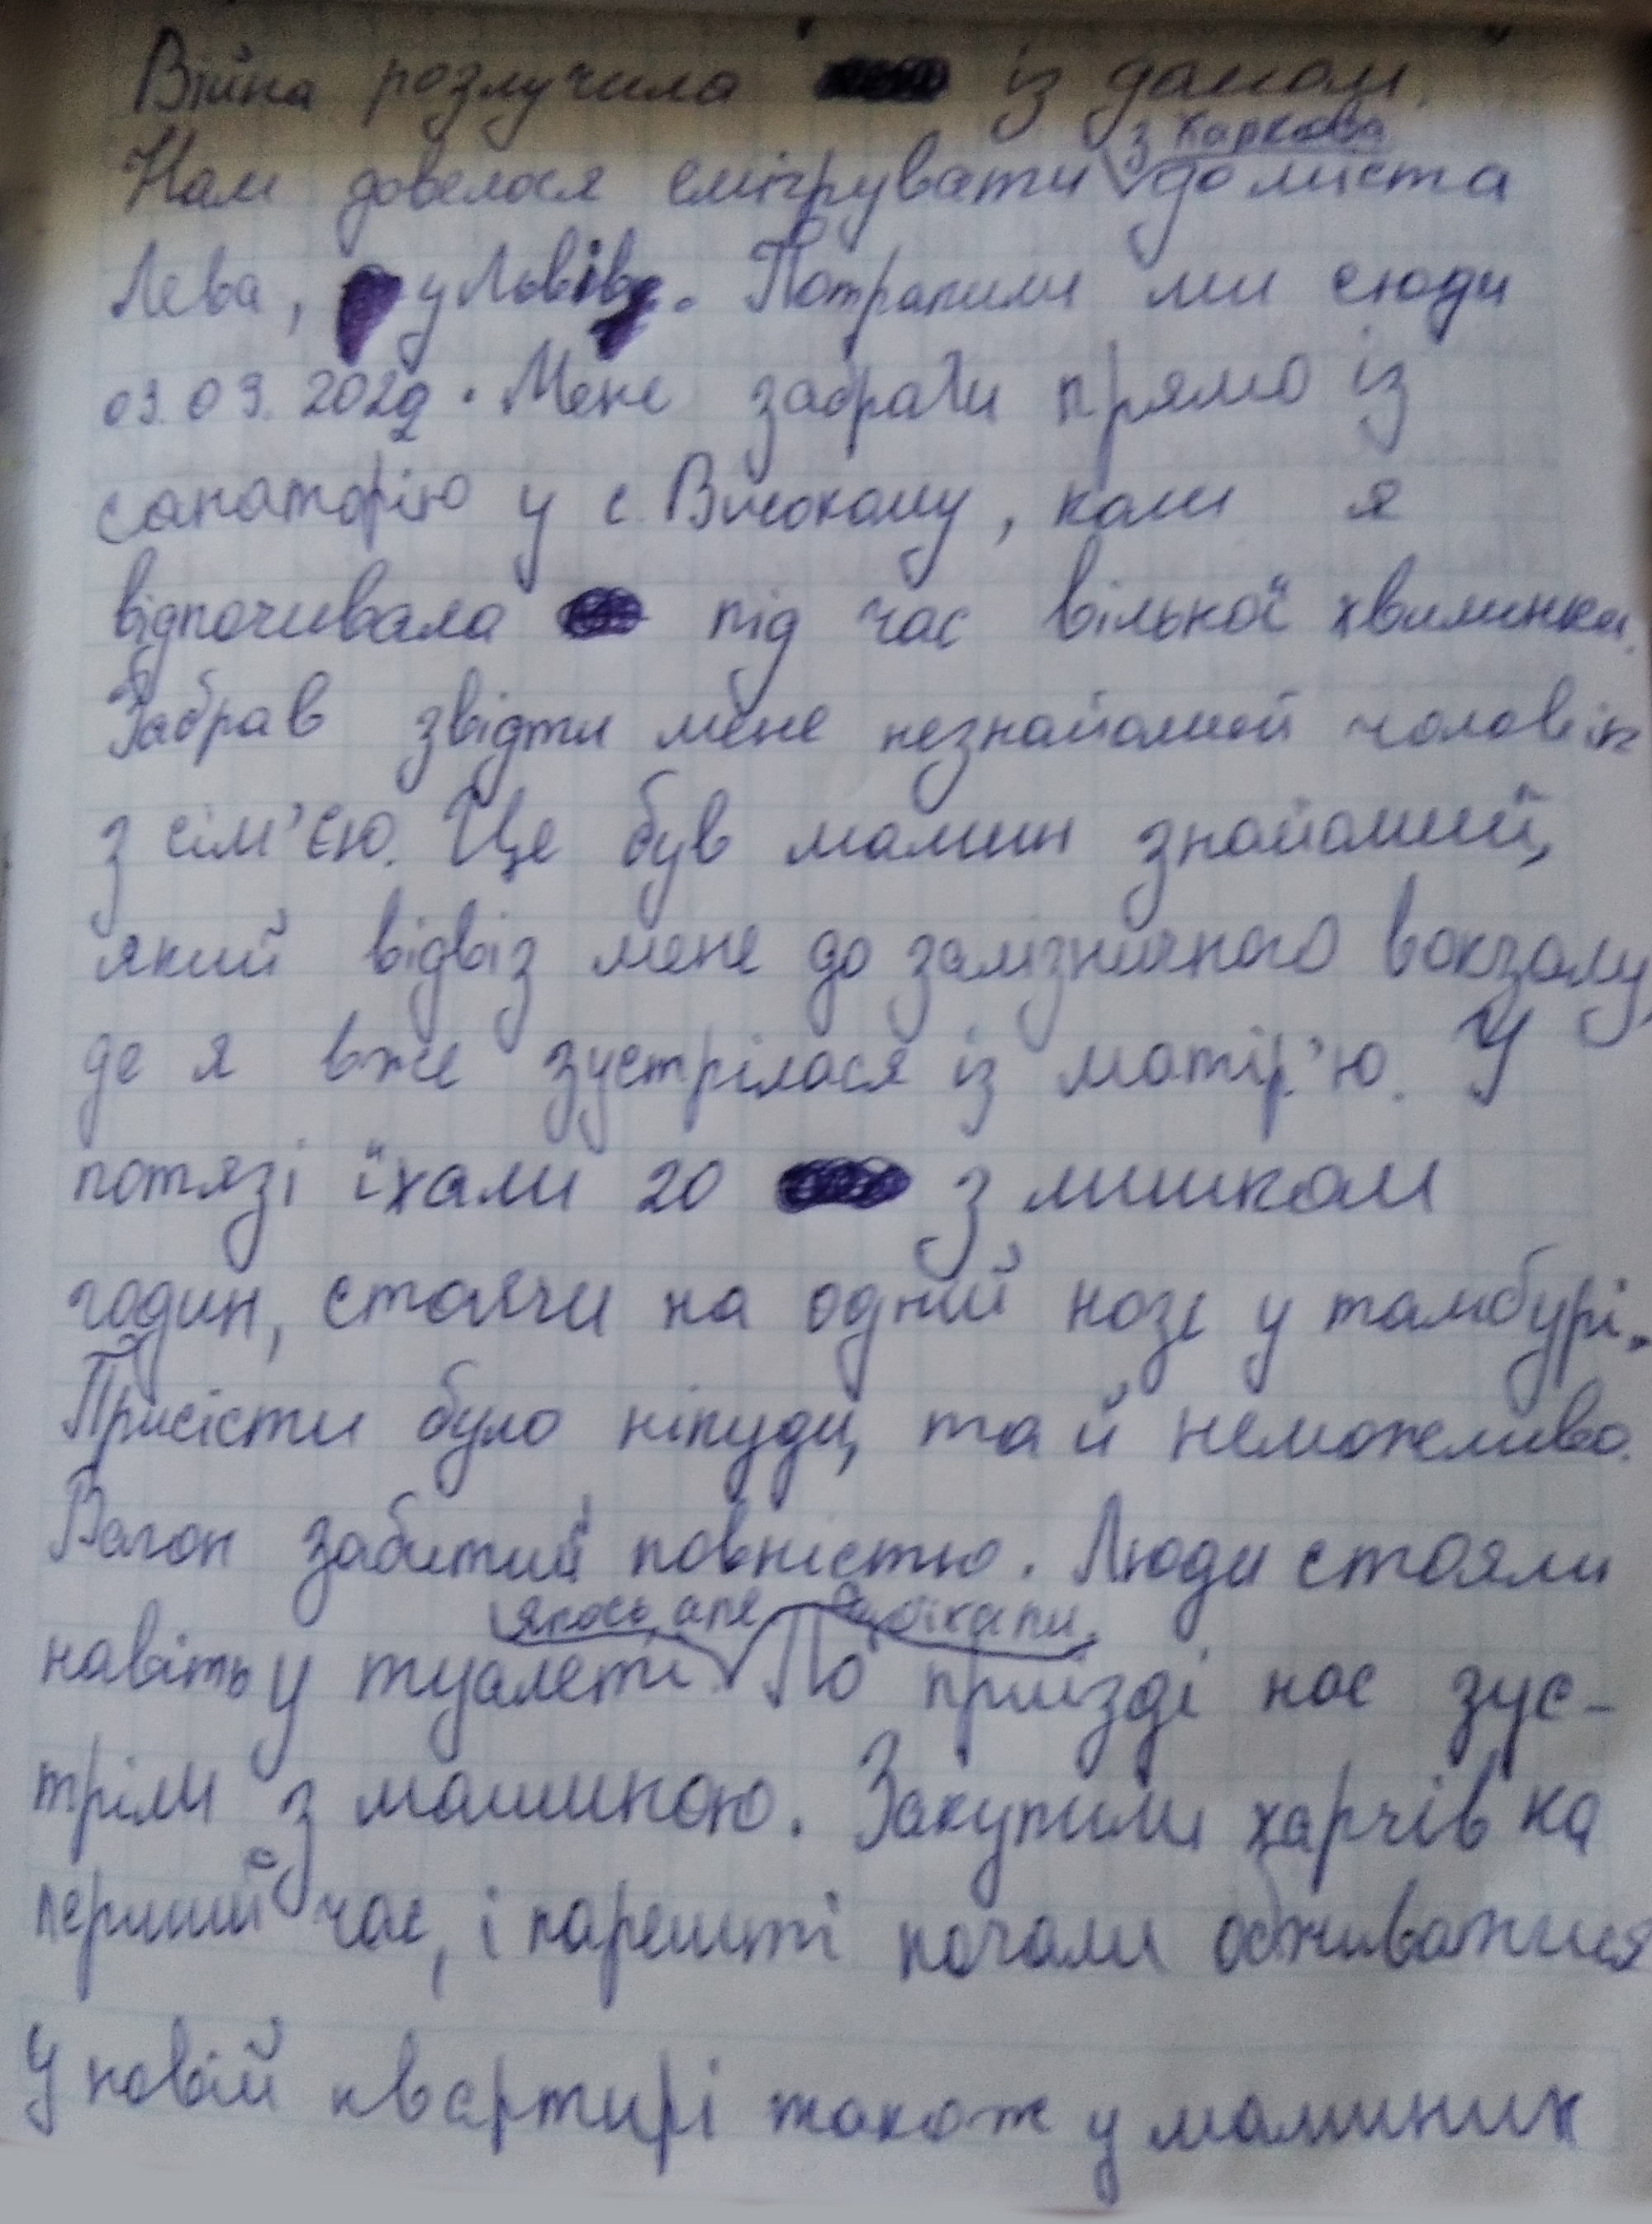 Війна розлучила із домом.
Нам довелося емігрувати з Харкова до міста
Лева, у Львів. Потрапили ми сюди
03.03.2022. Мене забрали прямо із
санаторію у с. Високому, коли я
відпочивала під час вільної хвилинки.
Забрав звідти мене незнайомий чоловік
з сім'єю. Це був мамин знайомий,
який відвіз мене до залізничного вокзалу,
де я вже зустрілася із матір'ю. У
потязі їхали 20 з лишком
годин, стоячи на одній нозі у тамбурі.
Присісти було нікуди, та й неможливо.
Вагон забитий повністю. Люди стояли
навіть у туалеті. Якось, але доїхали. По приїзді нас зус-
тріли з машиною. Закупили харчів на
перший час, і нарешті почали обживатися
У новій квартирі також у маминих